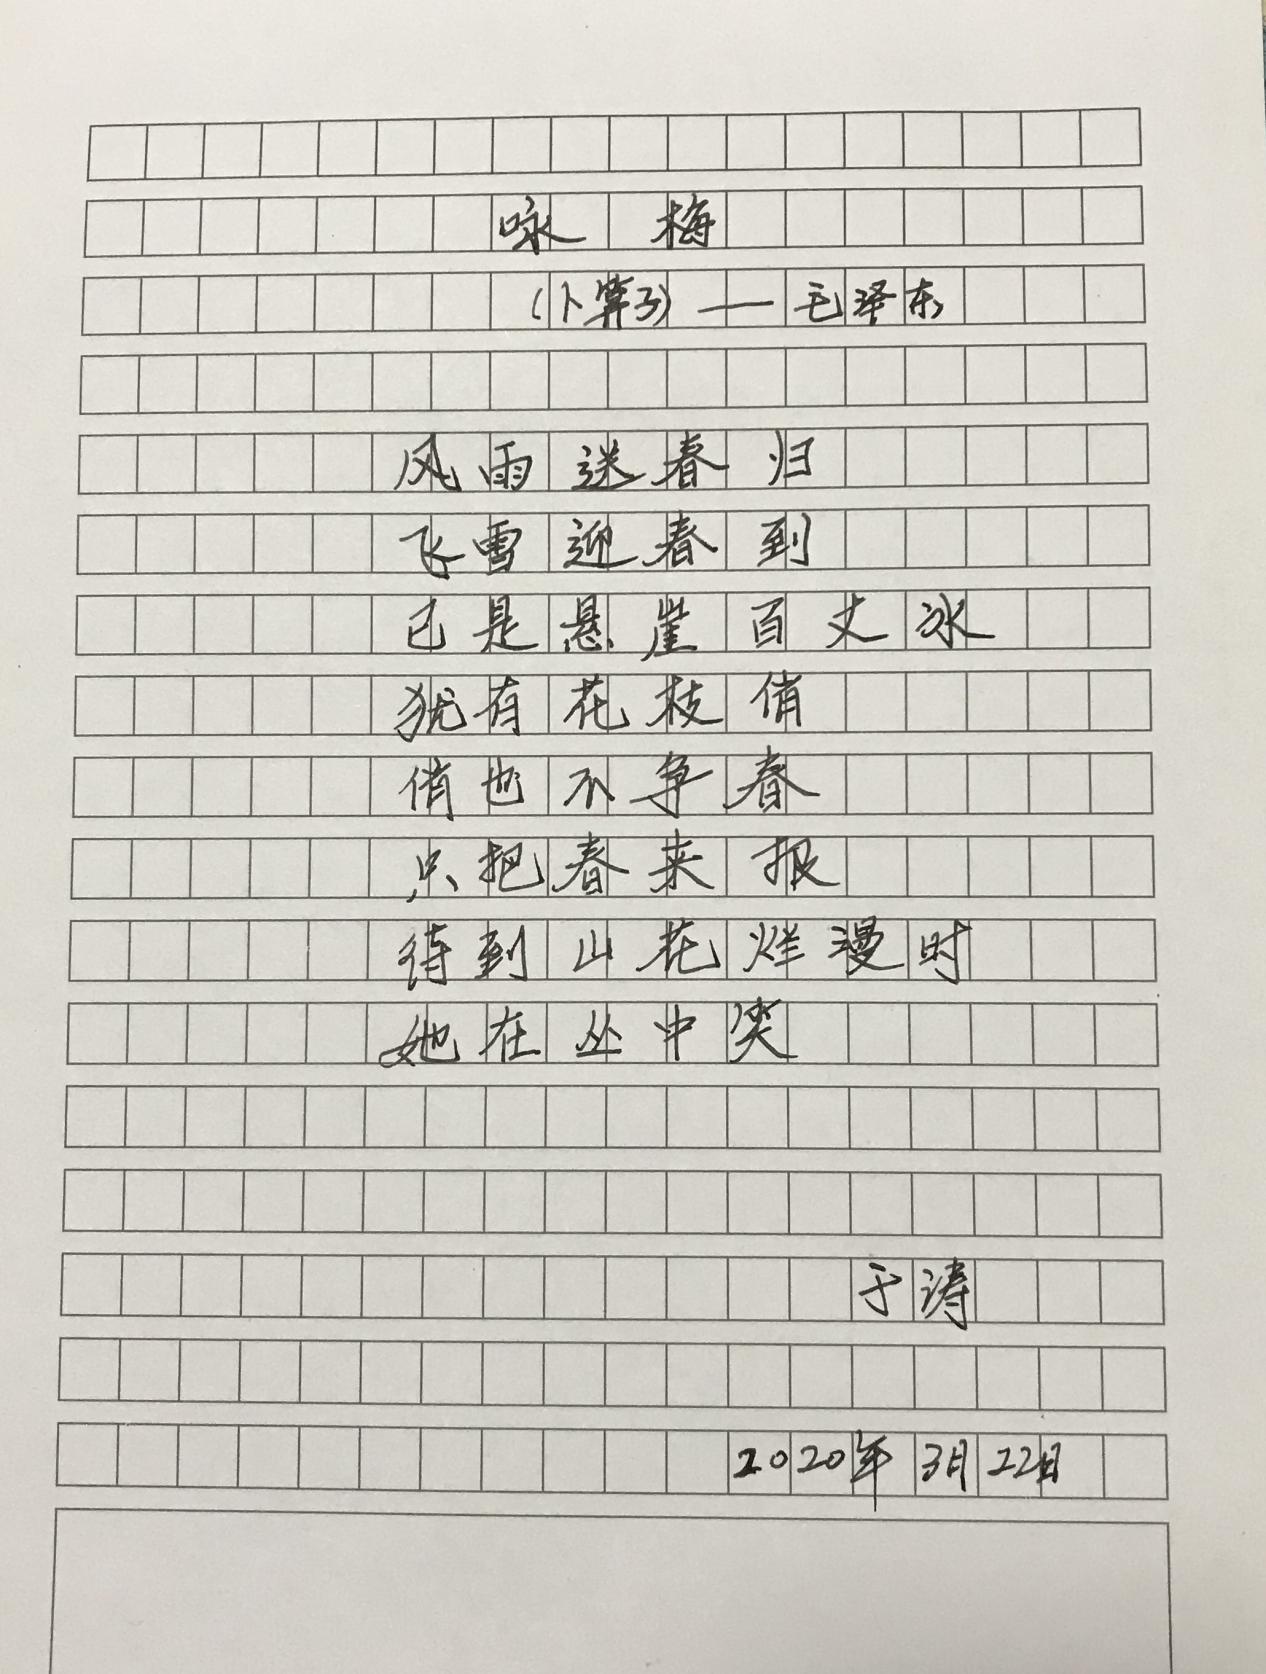 咏梅
(卜算子)——毛泽东
风雨送春归
飞雪迎春到
已是悬崖百丈冰
犹有花枝俏
俏也不争春
只把春来报
待到山花烂漫时
她在丛中笑
于涛
2020年3月22日